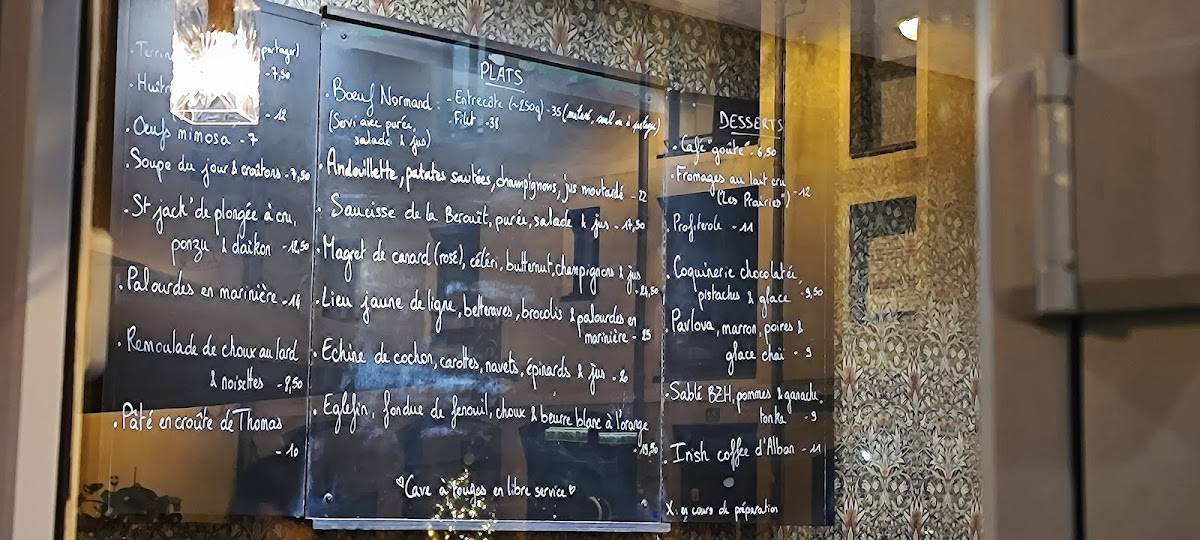 Terrin partager)
-7,50
Huîtr
-12
. Oeufs mimosa -7
. Soupe du jour & croûtons -7,50
. St jack' de plongée à cru,
ponzu & daikon -12,50
. Palourdes en marinière -14
. Remoulade de choux au lard
& noisettes -8,50
. Pâté en croûte de Thomas
-10
PLATS
. Bœuf Normand : - Entrecôte (~250g) -35 (maturé, seul ou à partager)
(Servi avec purée, - Filet -38
salade & jus)
. Andouillette, patates sautées, champignons, jus moutarde -22
. Saucisse de la Berouît, purée, salade & jus -17,50
. Magret de canard (rosé), céléri, butternut, champignons & jus
-24,50
. Lieu jaune de ligne, betteraves, brocolis & palourdes en
marinière -25
. Echine de cochon, carottes, navets, épinards & jus -20
. Eglefin, fondue de fenouil, choux & beurre blanc à l'orange
-19,50
♡Cave à rouges en libre service♡
DESSERTS
. Café "goûté" -6,50
. Fromages au lait cru
(Les Prairies) -12
. Profiterole -11
. Coquinerie chocolatée,
pistaches & glace -9,50
. Pavlova, marron, poires &
glace chaï -9
. Sablé BZH, pommes & ganache
tonka -9
. Irish coffee d'Alban -11
X. en cours de préparation